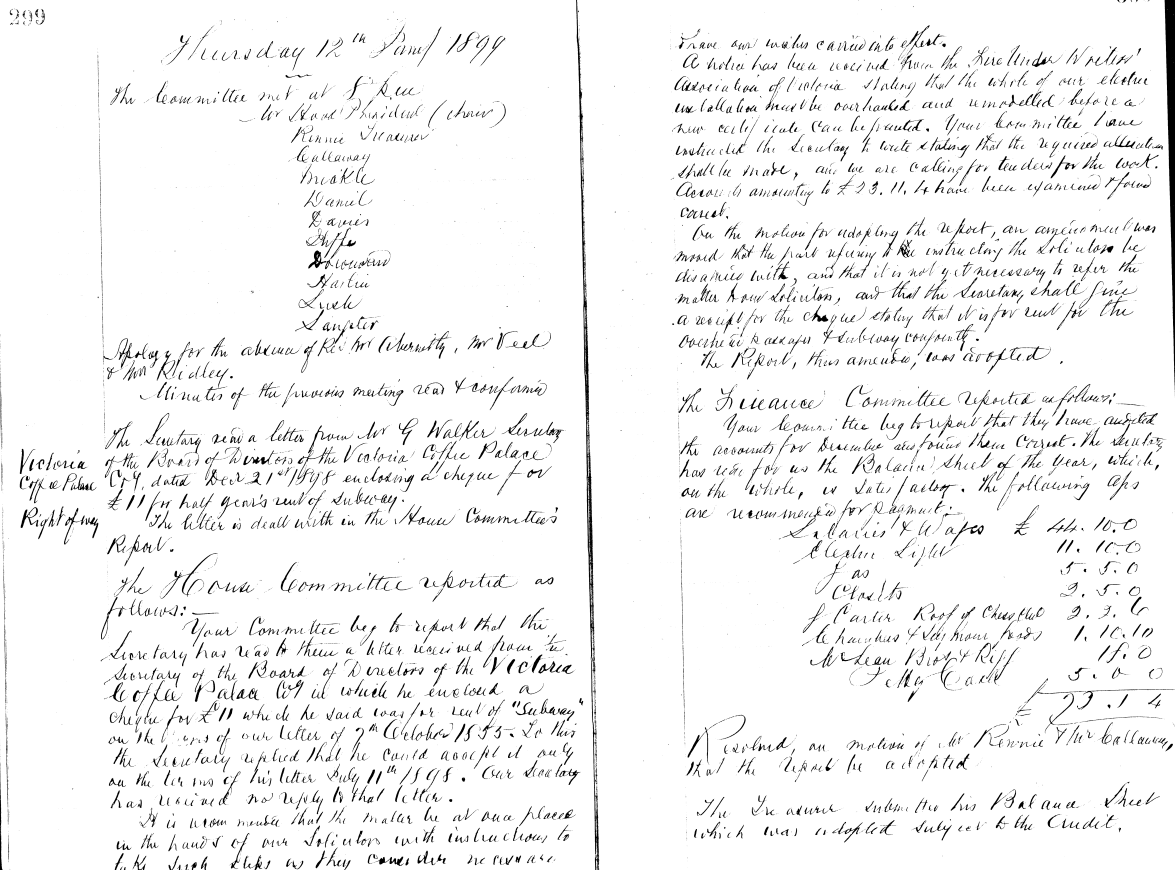 299
Thursday 12th Jany 1899
The Committee met at 8 p.m.
Mr Hood President (chair)
Rennie Treasurer
Callaway
Meakle
Daniel
Davies
Downward
Martin
Lush
Sangster
Apology for the absence of Rev Mr Abernethy, Mr Veal
& Mr Ridley.
Minutes of the previous meeting read & confirmed
The Secretary read a letter from Mr G Walker Secretary
of the Board of Directors of the Victoria Coffee Palace
Coy, dated Dec 21st 1898 enclosing a cheque for
£11 for half year's rent of subway.
Victoria
Coffee Palace
Right of way
The letter is dealt with in the House Committee's
Report.
The House Committee reported as
follows:—
Your Committee beg to report that the
Secretary has read to them a letter received from the
Secretary of the Board of Directors of the Victoria
Coffee Palace Coy in which he enclosed a
cheque for £11 which he said was for rent of "Subway"
on the terms of our letter of October 1855. To this
the Secretary replied that he could accept it only
on the terms of his letter July 11th 1898. Our Secretary
has received no reply to that letter.
It is recommended that the matter be at once placed
in the hands of our Solicitors with instructions to
take such steps as they consider necessary
to have our wishes carried into effect.
A notice has been received from the Fire Under Writers'
Association of Victoria stating that the whole of our electric
installation must be overhauled and remodelled before a
new certificate can be granted. Your Committee have
instructed the Secretary to write stating that the required alterations
shall be made, and we are calling for tenders for the work.
Accounts amounting to £23.11.4 have been examined & found
correct.
On the motion for adopting the report, an amendment was
moved that the part refering to the instructing the Solicitors be
dispensed with, and that it is not yet necessary to refer the
matter to our Solicitors, and that the Secretary shall give
a receipt for the cheque stating that it is for rent for the
overhead passages & subway conjointly.
The Report, thus amended, was adopted.
The Finance Committee reported as follows:—
Your Committee beg to report that they have audited
the accounts for December and found them correct. The Secretary
has read for us the Balance Sheet of the year, which,
on the whole, is satisfactory. The following a/cs
are recommended for payment:—
Salaries & Wages £ 44.10.0
Electric Light 11.10.0
Gas 5.5.0
Closets 2.5.0
J Carter Roof of Chess Club 2.3.6
& Seymour 1.10.10
McLean Bros & Rigg 18.0
Petty Cash 5.0.0
£ 73.1.4
Resolved, on motion of Mr Rennie & Mr Callaway,
that the report be adopted
The Treasurer submitted his Balance Sheet
which was adopted subject to the Audit.